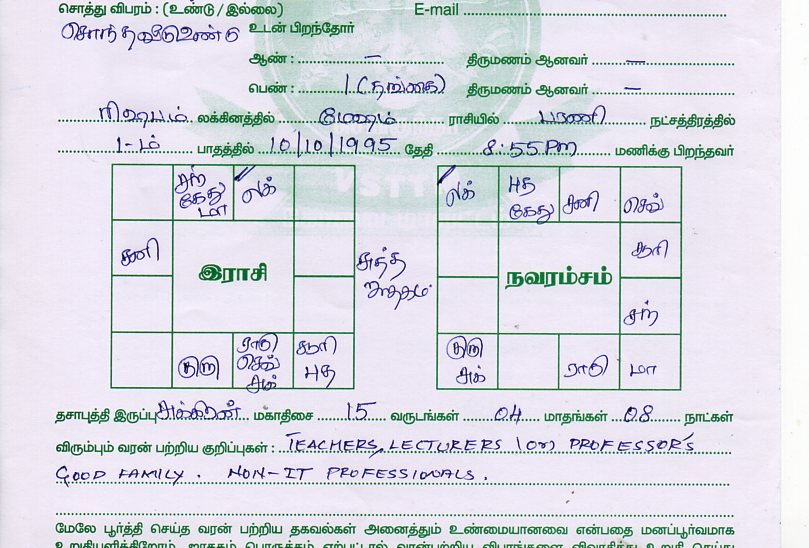 சொத்து விபரம் : (உண்டு / இல்லை) E-mail
சொந்தவீடு உண்டு உடன் பிறந்தோர்
ஆண் : — திருமணம் ஆனவர் —
பெண் : 1 (தங்கை) திருமணம் ஆனவர் —
ரிஷபம் லக்கினத்தில் மேஷம் ராசியில் பரணி நட்சத்திரத்தில்
1-ம் பாதத்தில் 10/10/1995 தேதி 8:55 PM மணிக்கு பிறந்தவர்
சந் கேது மா லக்
சனி
இராசி
குரு ராகு செவ் சுக் சூரி புத
சுத்த ஜாதகம்
லக் புத கேது சனி செவ்
சூரி
நவாம்சம்
சந்
குரு சுக் ராகு மா
தசாபுத்தி இருப்பு சுக்கிரன் மகாதிசை 15 வருடங்கள் 04 மாதங்கள் 08 நாட்கள்
விரும்பும் வரன் பற்றிய குறிப்புகள் : TEACHERS, LECTURERS (or) PROFESSOR'S
GOOD FAMILY. NON-IT PROFESSIONALS.
மேலே பூர்த்தி செய்த வரன் பற்றிய தகவல்கள் அனைத்தும் உண்மையானவை என்பதை மனப்பூர்வமாக